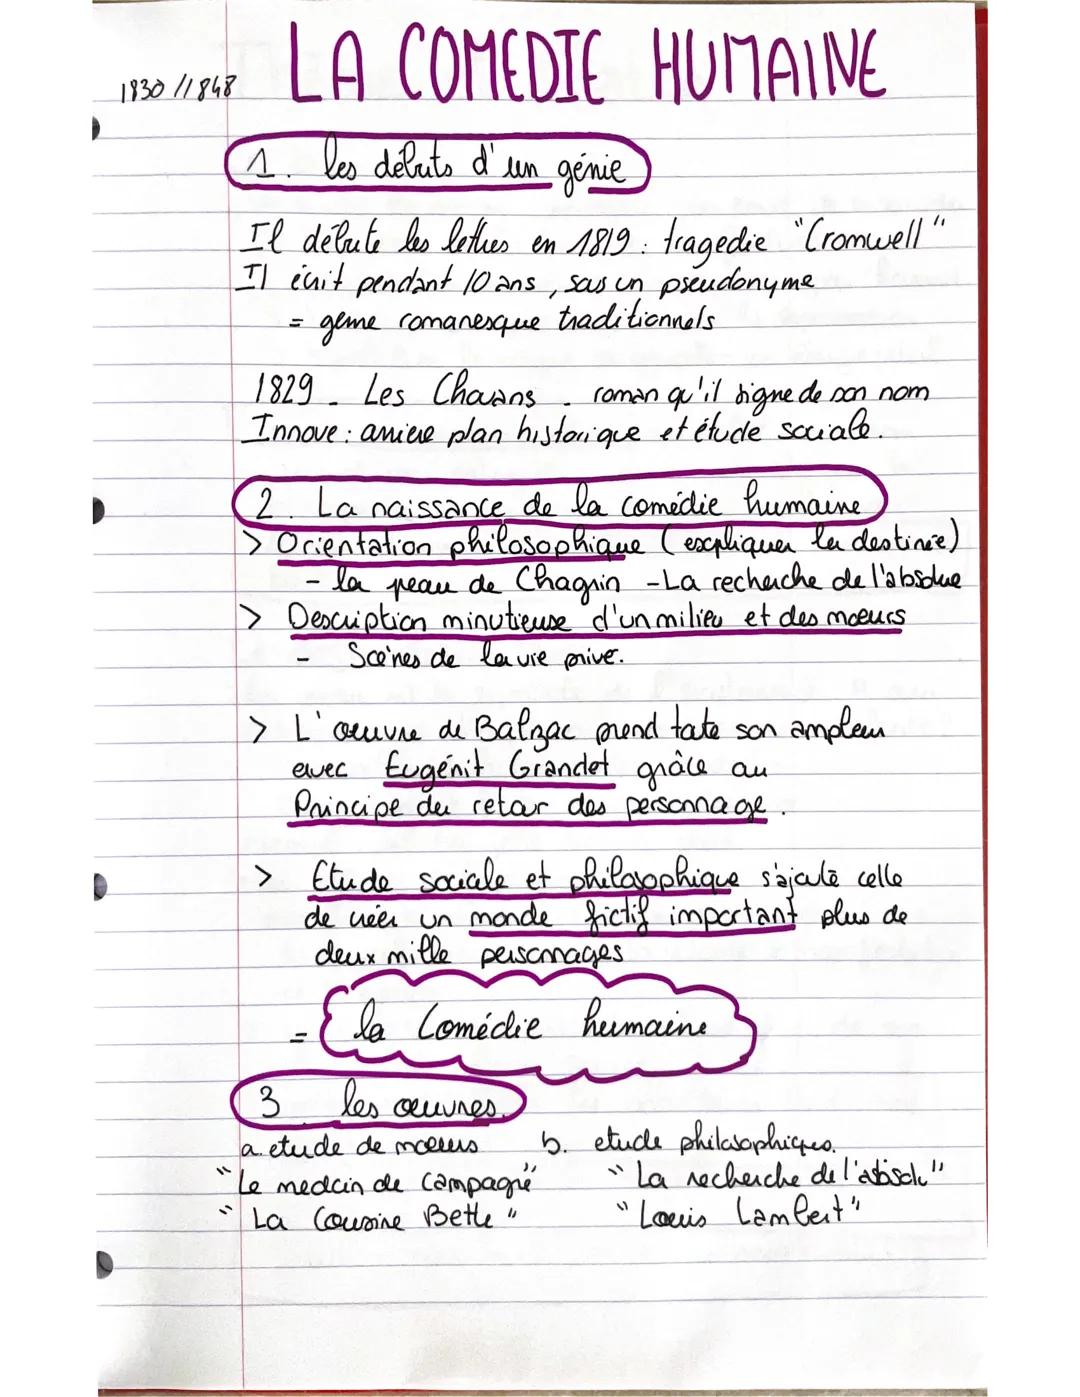 LA COMEDIE HUMAINE
1830 // 1848
1. les débuts d'un génie
Il débute les lettres en 1819 : tragedie "Cromwell"
Il écrit pendant 10 ans, sous un pseudonyme
= genre romanesque traditionnels
1829 - Les Chouans - roman qu'il signe de son nom
Innove : arriere plan historique et étude sociale.
2. La naissance de la comédie humaine
> Orientation philosophique (expliquer la destinée)
- la peau de Chagrin - La recherche de l'absolue
> Description minutieuse d'un milieu et des mœurs
- Scènes de la vie prive.
> L'œuvre de Balzac prend toute son ampleur
avec Eugénit Grandet grâce au
Principe du retour des personnage.
> Etude sociale et philosophique s'ajoute celle
de créer un monde fictif important plus de
deux mille personnages
= la Comédie humaine
3 les œuvres.
a. etude de mœurs b. etude philosophiques.
"Le medcin de campagne" "La recherche de l'absolu"
"La Cousine Bette" "Louis Lambert"